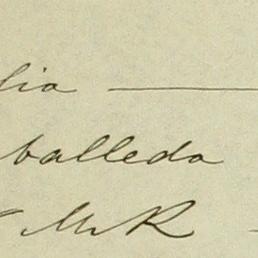 lia
balleda
Mr R